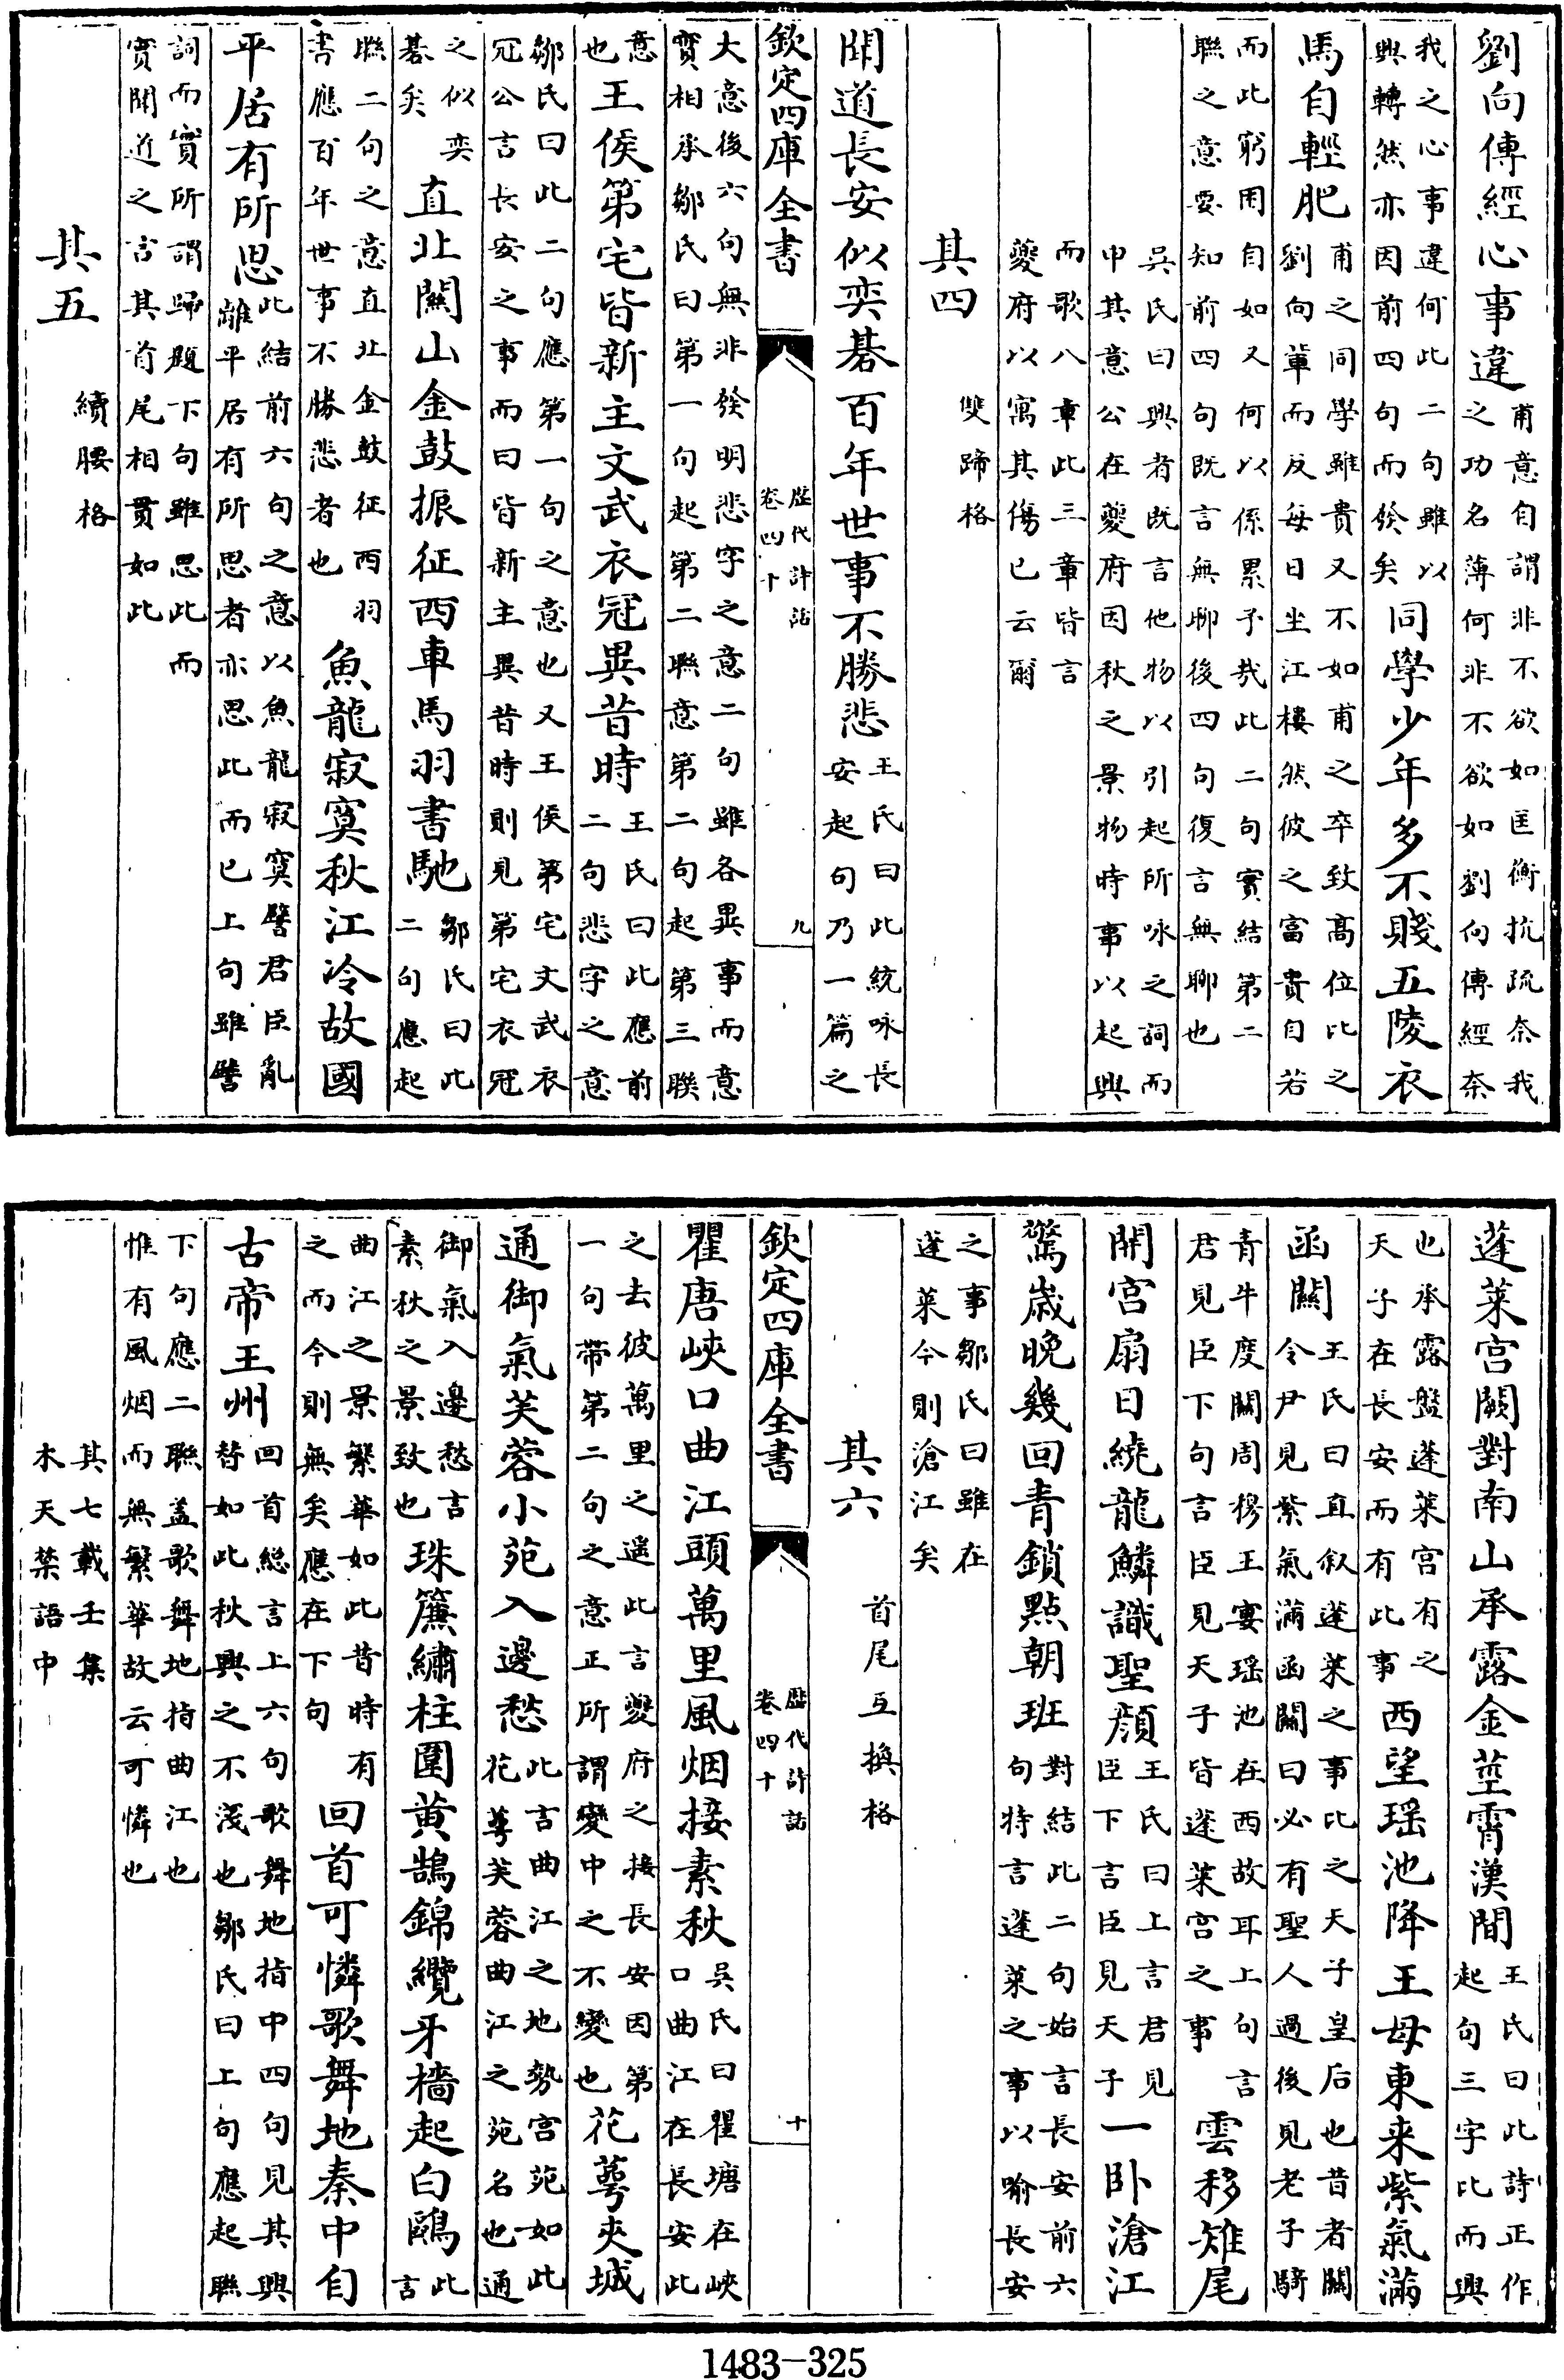 劉向傳經心事違甫意自謂非不欲如匡衡抗疏奈我之功名薄何非不欲如劉向傳經奈
我之心事違何此二句雖以興轉然亦因前四句而發矣同學少年多不賤五陵衣
馬自輕肥甫之同學雖貴又不如甫之卒致高位比之劉向輩而反每日坐江樓然彼之富貴自若
而此窮困自如又何以係累予哉此二句實結第二聯之意要知前四句既言無聊後四句復言無聊也
吳氏曰興者既言他物以引起所咏之詞而申其意公在夔府因秋之景物時事以起興
而歌八章此三章皆言夔府以寓其傷已云爾
其四 雙蹄格
聞道長安似奕碁百年世事不勝悲王氏曰此統咏長安起句乃一篇之
欽定四庫全書 歷代詩話卷四十 九
大意後六句無非發明悲字之意二句雖各異事而意實相承鄒氏曰第一句起第二聯意第二句起第三聯
意也王侯第宅皆新主文武衣冠異昔時王氏曰此應前二句悲字之意
鄒氏曰此二句應第一句之意也又王侯第宅文武衣冠公言長安之事而曰皆新主異昔時則見第宅衣冠
之似奕碁矣直北關山金鼓振征西車馬羽書馳鄒氏曰此二句應起
聯二句之意直北金鼓征西羽書應百年世事不勝悲者也魚龍寂寞秋江冷故國
平居有所思此結前六句之意以魚龍寂寞譬君臣亂離平居有所思者亦思此而已上句雖譬
詞而實所謂歸題下句雖思此而實聞道之言其首尾相貫如此
其五 續腰格
蓬萊宮闕對南山承露金莖霄漢間王氏曰此詩正作起句三字比而興
也承露盤蓬萊宮有之天子在長安而有此事西望瑶池降王母東来紫氣滿
函關王氏曰直叙蓬萊之事比之天子皇后也昔者關令尹見紫氣滿函關曰必有聖人過後見老子騎
青牛度關周穆王宴瑶池在西故耳上句言君見臣下句言臣見天子皆蓬萊宮之事雲移雉尾
開宮扇日繞龍鱗識聖顔王氏曰上言君見臣下言臣見天子一卧滄江
驚歲晚幾回青鎖點朝班對結此二句始言長安前六句特言蓬萊之事以喻長安
之事鄒氏曰雖在蓬萊今則滄江矣
其六 首尾互換格
瞿唐峽口曲江頭萬里風烟接素秋吳氏曰瞿塘在峽口曲江在長安此
欽定四庫全書 歷代詩話卷四十 十
之去彼萬里之遥此言夔府之接長安因第一句帶第二句之意正所謂變中之不變也花萼夾城
通御氣芙蓉小苑入邊愁此言曲江之地勢宮苑如此花萼芙蓉曲江之苑名也通
御氣入邊愁言素秋之景致也珠簾繡柱圍黄鵠錦纜牙檣起白鷗此言
曲江之景繁華如此昔時有之而今則無矣應在下句回首可憐歌舞地秦中自
古帝王州回首總言上六句歌舞地指中四句見其興替如此秋興之不淺也鄒氏曰上句應起聯
下句應二聯盖歌舞地指曲江也惟有風烟而無繁華故云可憐也
其七載壬集木天禁語中
1483-325